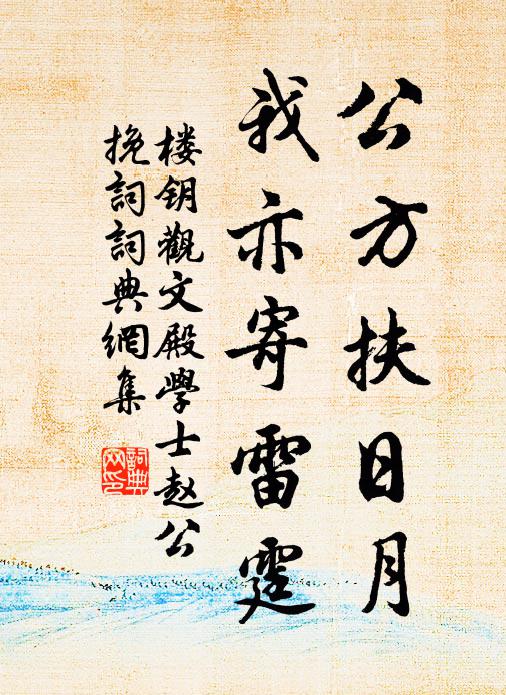 公方扶日月
我亦寄雷霆
楼钥觀文殿學士赵公
挽詞詞典網集
詞典
网印